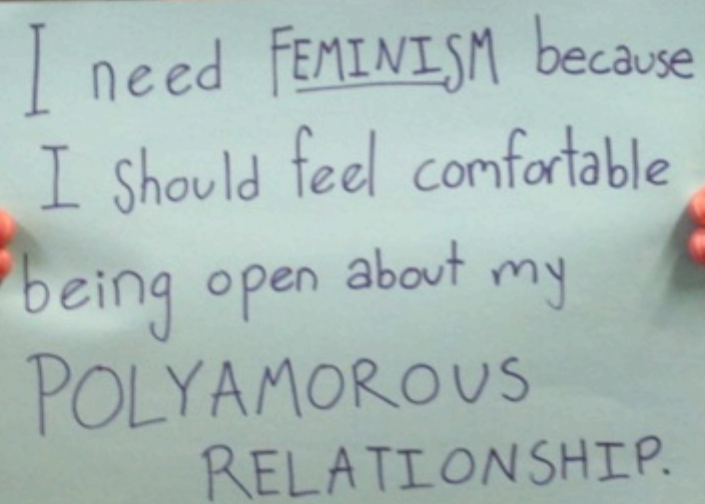 I need FEMINISM because
I should feel comfortable
being open about my
POLYAMOROUS
RELATIONSHIP.